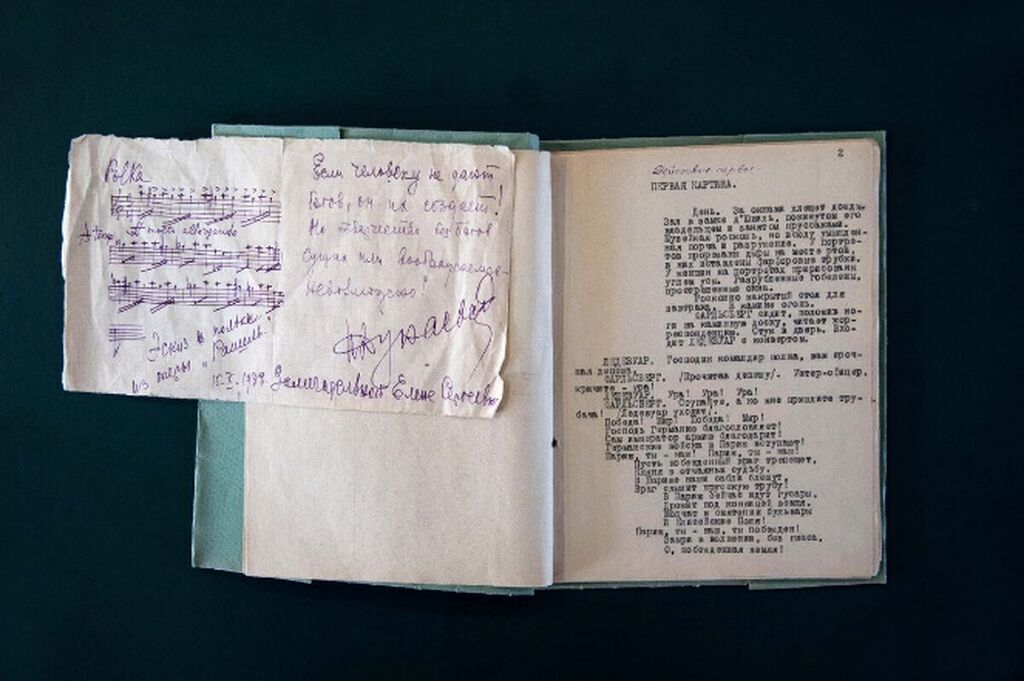 Polka
A tempo
Эскиз к польке
из оперы "Рашель"
15.I.1939.
Если человеку не дают
богов, он их создает!
Но творчество без богов
сущих или воображаемых
невозможно!
Замечательной Елене Сергеевне
2
Действие первое
ПЕРВАЯ КАРТИНА.
День. За окнами хлещет дождь.
Зал в замке д'Ювиль, покинутом его
владельцем и занятом пруссаками.
Музейная роскошь, но всюду умышлен-
ная порча и разрушение. У портре-
тов прорезаны дыры на месте ртов,
в них вставлены фарфоровые трубки.
У женщин на портретах пририсованы
углем усы. Разрубленные гобелены,
простреленные окна.
Роскошно накрытый стол для
завтрака. В камине огонь.
ФАРЛЬСБЕРГ сидит, положив но-
ги на каминную доску, читает кор-
респонденцию. Стук в дверь. Вхо-
дит ЛЕДЕВУАР с конвертом.
ЛЕДЕВУАР. Господин командир полка, вам сроч-
ная депеша.
ФАРЛЬСБЕРГ. /Прочитав депешу/. Унтер-офицер,
кричите - ура!
ЛЕДЕВУАР. Ура! Ура! Ура!
ФАРЛЬСБЕРГ. Ступайте, а ко мне пришлите тру-
бача! /Ледевуар уходит/.
Победа! Мир! Победа! Мир!
Господь Германию благословляет!
Сам император армию благодарит!
Германские войска в Париж вступают!
Париж, ты - наш! Париж, ты - наш!
Пусть побежденный враг трепещет,
Кляня в отчаяньи судьбу.
В Париже наши сабли блещут,
Враг слышит прусскую трубу!
В Париж сейчас идут гусары,
Дрожит под конницей земля.
Молчат в смятении бульвары
И Елисейские Поля!
Париж, ты - наш, ты побежден!
Замри в молчании, без гласа,
О, побежденная земля!